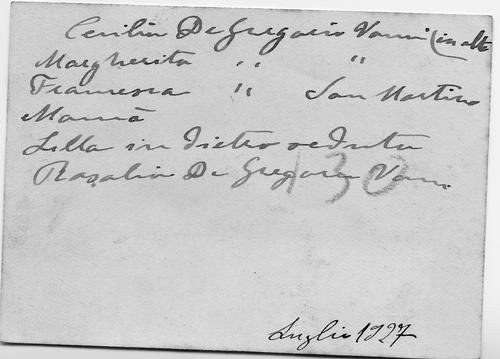 Cecilia De Gregorio Vanni (in alto
Margherita " "
Francesca " San Martino
Mamà
Lilla in dietro seduta
Rosalia De Gregorio Vanni
130
Luglio 1927